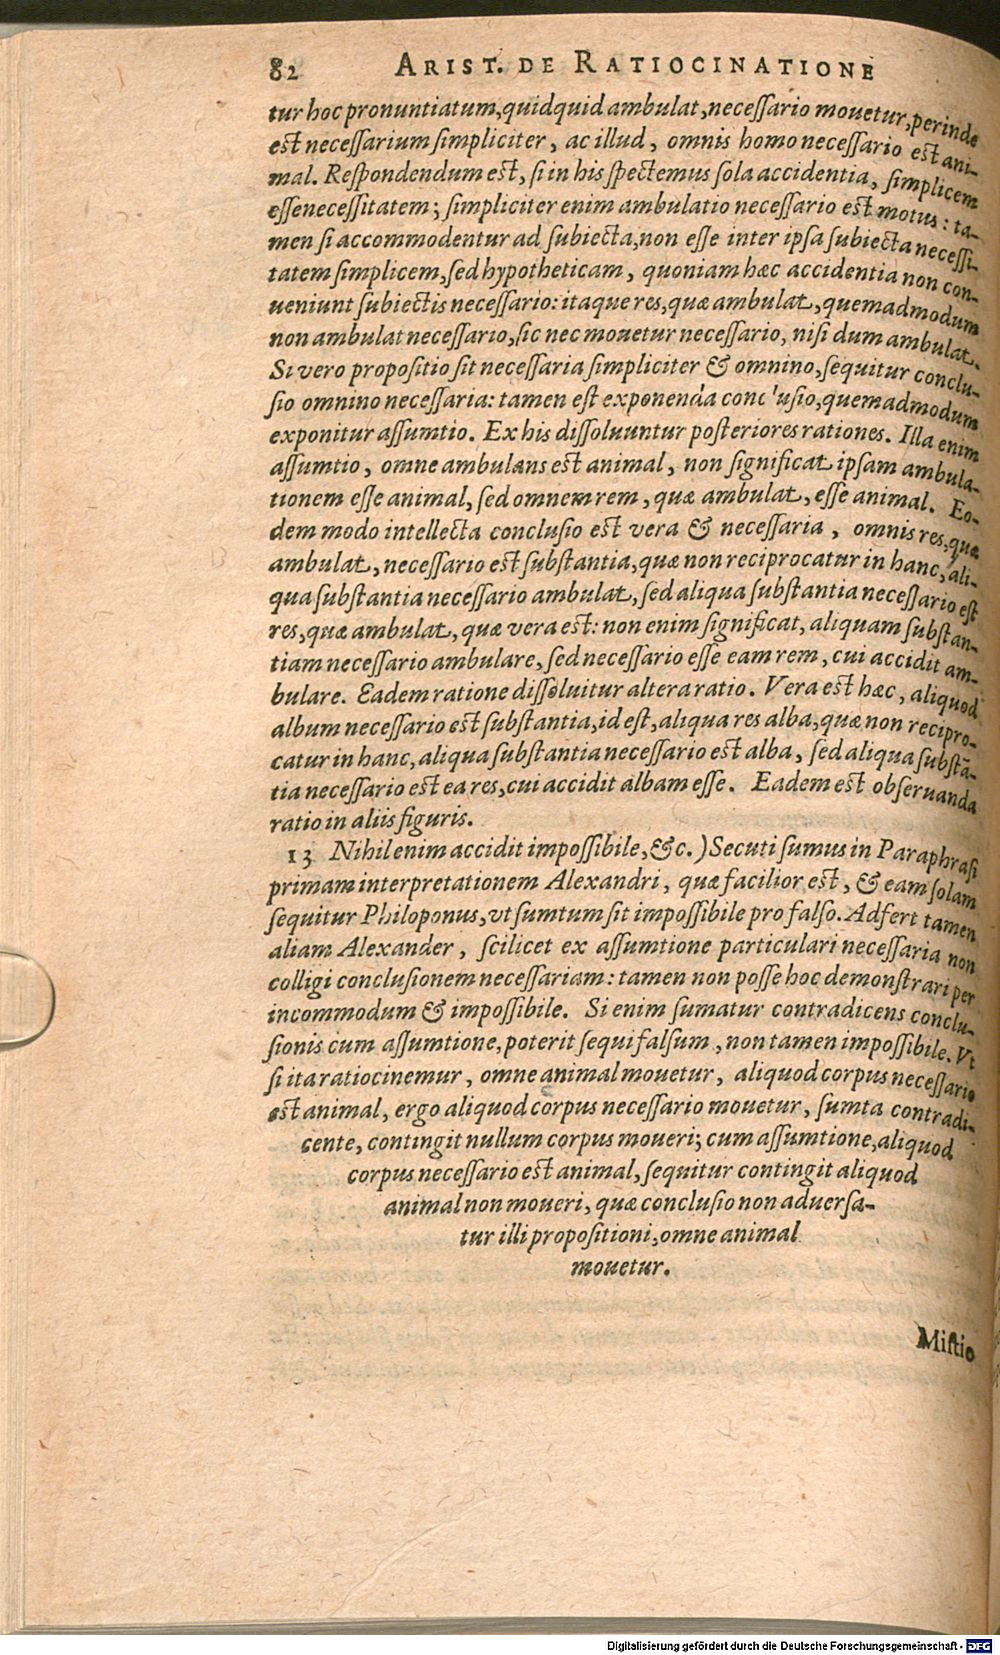 82 ARIST. DE RATIOCINATIONE
tur hoc pronuntiatum, quidquid ambulat, necessario mouetur, perinde
est necessarium simpliciter, ac illud, omnis homo necessario est ani-
mal. Respondendum est, si in his spectemus sola accidentia, simplicem
esse necessitatem; simpliciter enim ambulatio necessario est motus: ta-
men si accommodentur ad subiecta, non esse inter ipsa subiecta necessi-
tatem simplicem, sed hypotheticam, quoniam hæc accidentia non con-
ueniunt subiectis necessario: itaque res, quæ ambulat, quemadmodum
non ambulat necessario, sic nec mouetur necessario, nisi dum ambulat.
Si vero propositio sit necessaria simpliciter & omnino, sequitur conclu-
sio omnino necessaria: tamen est exponenda conclusio, quemadmodum
exponitur assumtio. Ex his dissoluuntur posteriores rationes. Illa enim
assumtio, omne ambulans est animal, non significat ipsam ambula-
tionem esse animal, sed omnem rem, quæ ambulat, esse animal. Eo-
dem modo intellecta conclusio est vera & necessaria, omnis res, quæ
ambulat, necessario est substantia, quæ non reciprocatur in hanc, ali-
qua substantia necessario ambulat, sed aliqua substantia necessario est
res, quæ ambulat, quæ vera est: non enim significat, aliquam substan-
tiam necessario ambulare, sed necessario esse eam rem, cui accidit am-
bulare. Eadem ratione dissoluitur altera ratio. Vera est hæc, aliquod
album necessario est substantia, id est, aliqua res alba, quæ non recipro-
catur in hanc, aliqua substantia necessario est alba, sed aliqua substā-
tia necessario est ea res, cui accidit albam esse. Eadem est obseruanda
ratio in aliis figuris.
13 Nihil enim accidit impossibile, &c.) Secuti sumus in Paraphrasi
primam interpretationem Alexandri, quæ facilior est, & eam solam
sequitur Philoponus, vt sumtum sit impossibile pro falso. Adfert tamen
aliam Alexander, scilicet ex assumtione particulari necessaria non
colligi conclusionem necessariam: tamen non posse hoc demonstrari per
incommodum & impossibile. Si enim sumatur contradicens conclu-
sionis cum assumtione, poterit sequi falsum, non tamen impossibile. Vt
si ita ratiocinemur, omne animal mouetur, aliquod corpus necessario
est animal, ergo aliquod corpus necessario mouetur, sumta contradi-
cente, contingit nullum corpus moueri; cum assumtione, aliquod
corpus necessario est animal, sequitur contingit aliquod
animal non moueri, quæ conclusio non aduersa-
tur illi propositioni, omne animal
mouetur.
Mistio
Digitalisierung gefördert durch die Deutsche Forschungsgemeinschaft - DFG